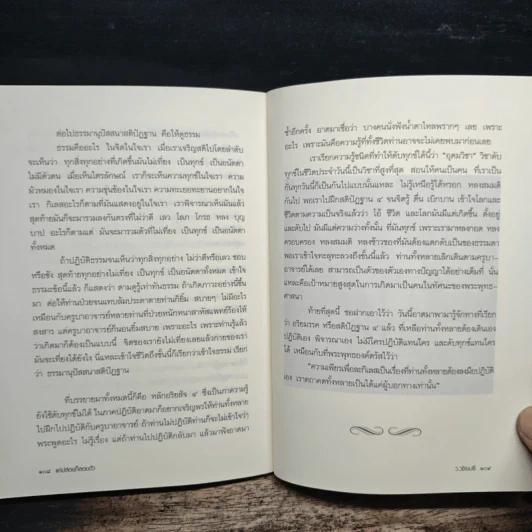 ต่อไปธรรมานุปัสสนาสติปัฏฐาน คือให้ดูธรรม
ธรรมคืออะไร ในจิตในใจเรา เมื่อเราเจริญสติไปโดยลำดับ
จะเห็นว่า ทุกสิ่งทุกอย่างที่เกิดขึ้นมันไม่เที่ยง เป็นทุกข์ เป็นอนัตตา
ไม่มีตัวตน เมื่อเห็นไตรลักษณ์ เราก็จะเห็นความทุกข์ในใจเรา ความ
มัวหมองในใจเรา ความขุ่นข้องในใจเรา ความทะเยอทะยานอยากในใจ
เรา กิเลสอะไรก็ตามที่มันแสดงอยู่ในใจเรา เราพิจารณาเห็นมันแล้ว
สุดท้ายมันก็จะมารวมลงกันตรงที่ไม่ว่าดี เลว โลภ โกรธ หลง บุญ
บาป อะไรก็ตามแต่ มันจะมารวมที่ไม่เที่ยง เป็นทุกข์ เป็นอนัตตา
ทั้งหมด
ถ้าปฏิบัติธรรมจนเห็นว่าทุกสิ่งทุกอย่าง ไม่ว่าดีหรือเลว ชอบ
หรือชัง สุดท้ายทุกอย่างไม่เที่ยง เป็นทุกข์ เป็นอนัตตาทั้งหมด เข้าใจ
ธรรมะข้อนี้แล้ว ก็แสดงว่า ตามดูรู้เท่าทันธรรม ถ้าเกิดภาวะอย่างนี้ขึ้น
มา ต่อให้ท่านป่วยจนแทบล้มประดาตายท่านก็ยิ้ม สบายๆ ไม่มีอะไร
เหมือนกับครูบาอาจารย์หลายท่านที่ป่วยหนักนาสาหัสแพทย์ร้องไห้
สงสาร แต่ครูบาอาจารย์ก็นอนยิ้มสบาย เพราะอะไร เพราะท่านรู้แล้ว
ว่าเกิดมาก็ต้องเป็นแบบนี้ จิตของเรายังไม่เที่ยงเลยแล้วกายของเรา
มันจะเที่ยงได้ยังไง นี่แหละเข้าใจชีวิตถึงขั้นนี้ก็เรียกว่าเข้าใจธรรม เรียก
ว่า ธรรมานุปัสสนาสติปัฏฐาน
ที่บรรยายมาทั้งหมดนี้ก็คือ หลักอริยสัจ ๔ ซึ่งเป็นภาคความรู้
ยังใช้ดับทุกข์ไม่ได้ ในภาคปฏิบัติอาตมาก็อยากเจริญพรให้ท่านทั้งหลาย
ไปฝึกไปปฏิบัติกับครูบาอาจารย์ ถ้าท่านไม่ปฏิบัติท่านก็จะไม่เข้าใจว่า
พระพูดอะไร ไม่รู้เรื่อง แต่ถ้าท่านไปปฏิบัติกลับมา แล้วมาฟังอาตมา
๑๐๘
ซ้ำอีกครั้ง อาตมาเชื่อว่า บางคนนั่งฟังน้ำตาไหลพรากๆ เลย เพราะ
อะไร เพราะมันคือความรู้ที่ทั้งชีวิตท่านอาจจะไม่เคยพบมาก่อนเลย
เราเรียกความรู้ชนิดที่ทำให้ดับทุกข์ได้นี้ว่า "อุดมวิชา" วิชาดับ
ทุกข์ในชีวิตประจำวันนี้เป็นวิชาที่สูงที่สุด สอนให้คนเป็นคน ที่เราเป็น
กันทุกวันนี้ก็เป็นกันไปแบบนั้นแหละ ไม่รู้เหนือรู้ใต้หรอก หลงสมมติ
กันไป พอเราไปฝึกสติปัฏฐาน ๔ จนจิตรู้ ตื่น เบิกบาน เข้าใจโลกและ
ชีวิตตามความเป็นจริงแล้วว่า โอ้ ชีวิต และโลกมันมีแต่เกิดขึ้น ตั้งอยู่
และดับไป มันมีแต่ความว่างทั้งนั้น ที่ทุกข์มา เพราะเราหลงกอด หลง
ครอบครอง หลงสมมติ หลงข้าวของที่มันต้องแตกดับเป็นของธรรมดา
พอเราเข้าใจทะลุทะลวงถึงขั้นนี้แล้ว ท่านทั้งหลายเลิกเดินตามครูบา-
อาจารย์ได้เลย สามารถเป็นตัวของตัวเองทางปัญญาได้อย่างเต็มที่ นั่น
แหละคือเป้าหมายสูงสุดในการเกิดมาเป็นคนในทัศนะของพระพุทธ-
ศาสนา
ท้ายที่สุดนี้ ขอฝากเอาไว้ว่า วันนี้อาตมาพามารู้จักทางที่เรียก
ว่า อริยมรรค หรือสติปัฏฐาน ๔ แล้ว ที่เหลือท่านทั้งหลายต้องเดินเอง
ปฏิบัติเอง พิจารณาเอง ไม่มีใครปฏิบัติแทนใคร และดับทุกข์แทนใคร
ได้ เหมือนกับที่พระพุทธองค์ตรัสไว้ว่า
"ความเพียรเพื่อละกิเลสเป็นเรื่องที่ท่านทั้งหลายต้องลงมือปฏิบัติ
เอง เราตถาคตทั้งหลายเป็นได้แค่ผู้บอกทางเท่านั้น"
ว.วชิรเมธี ๑๐๙